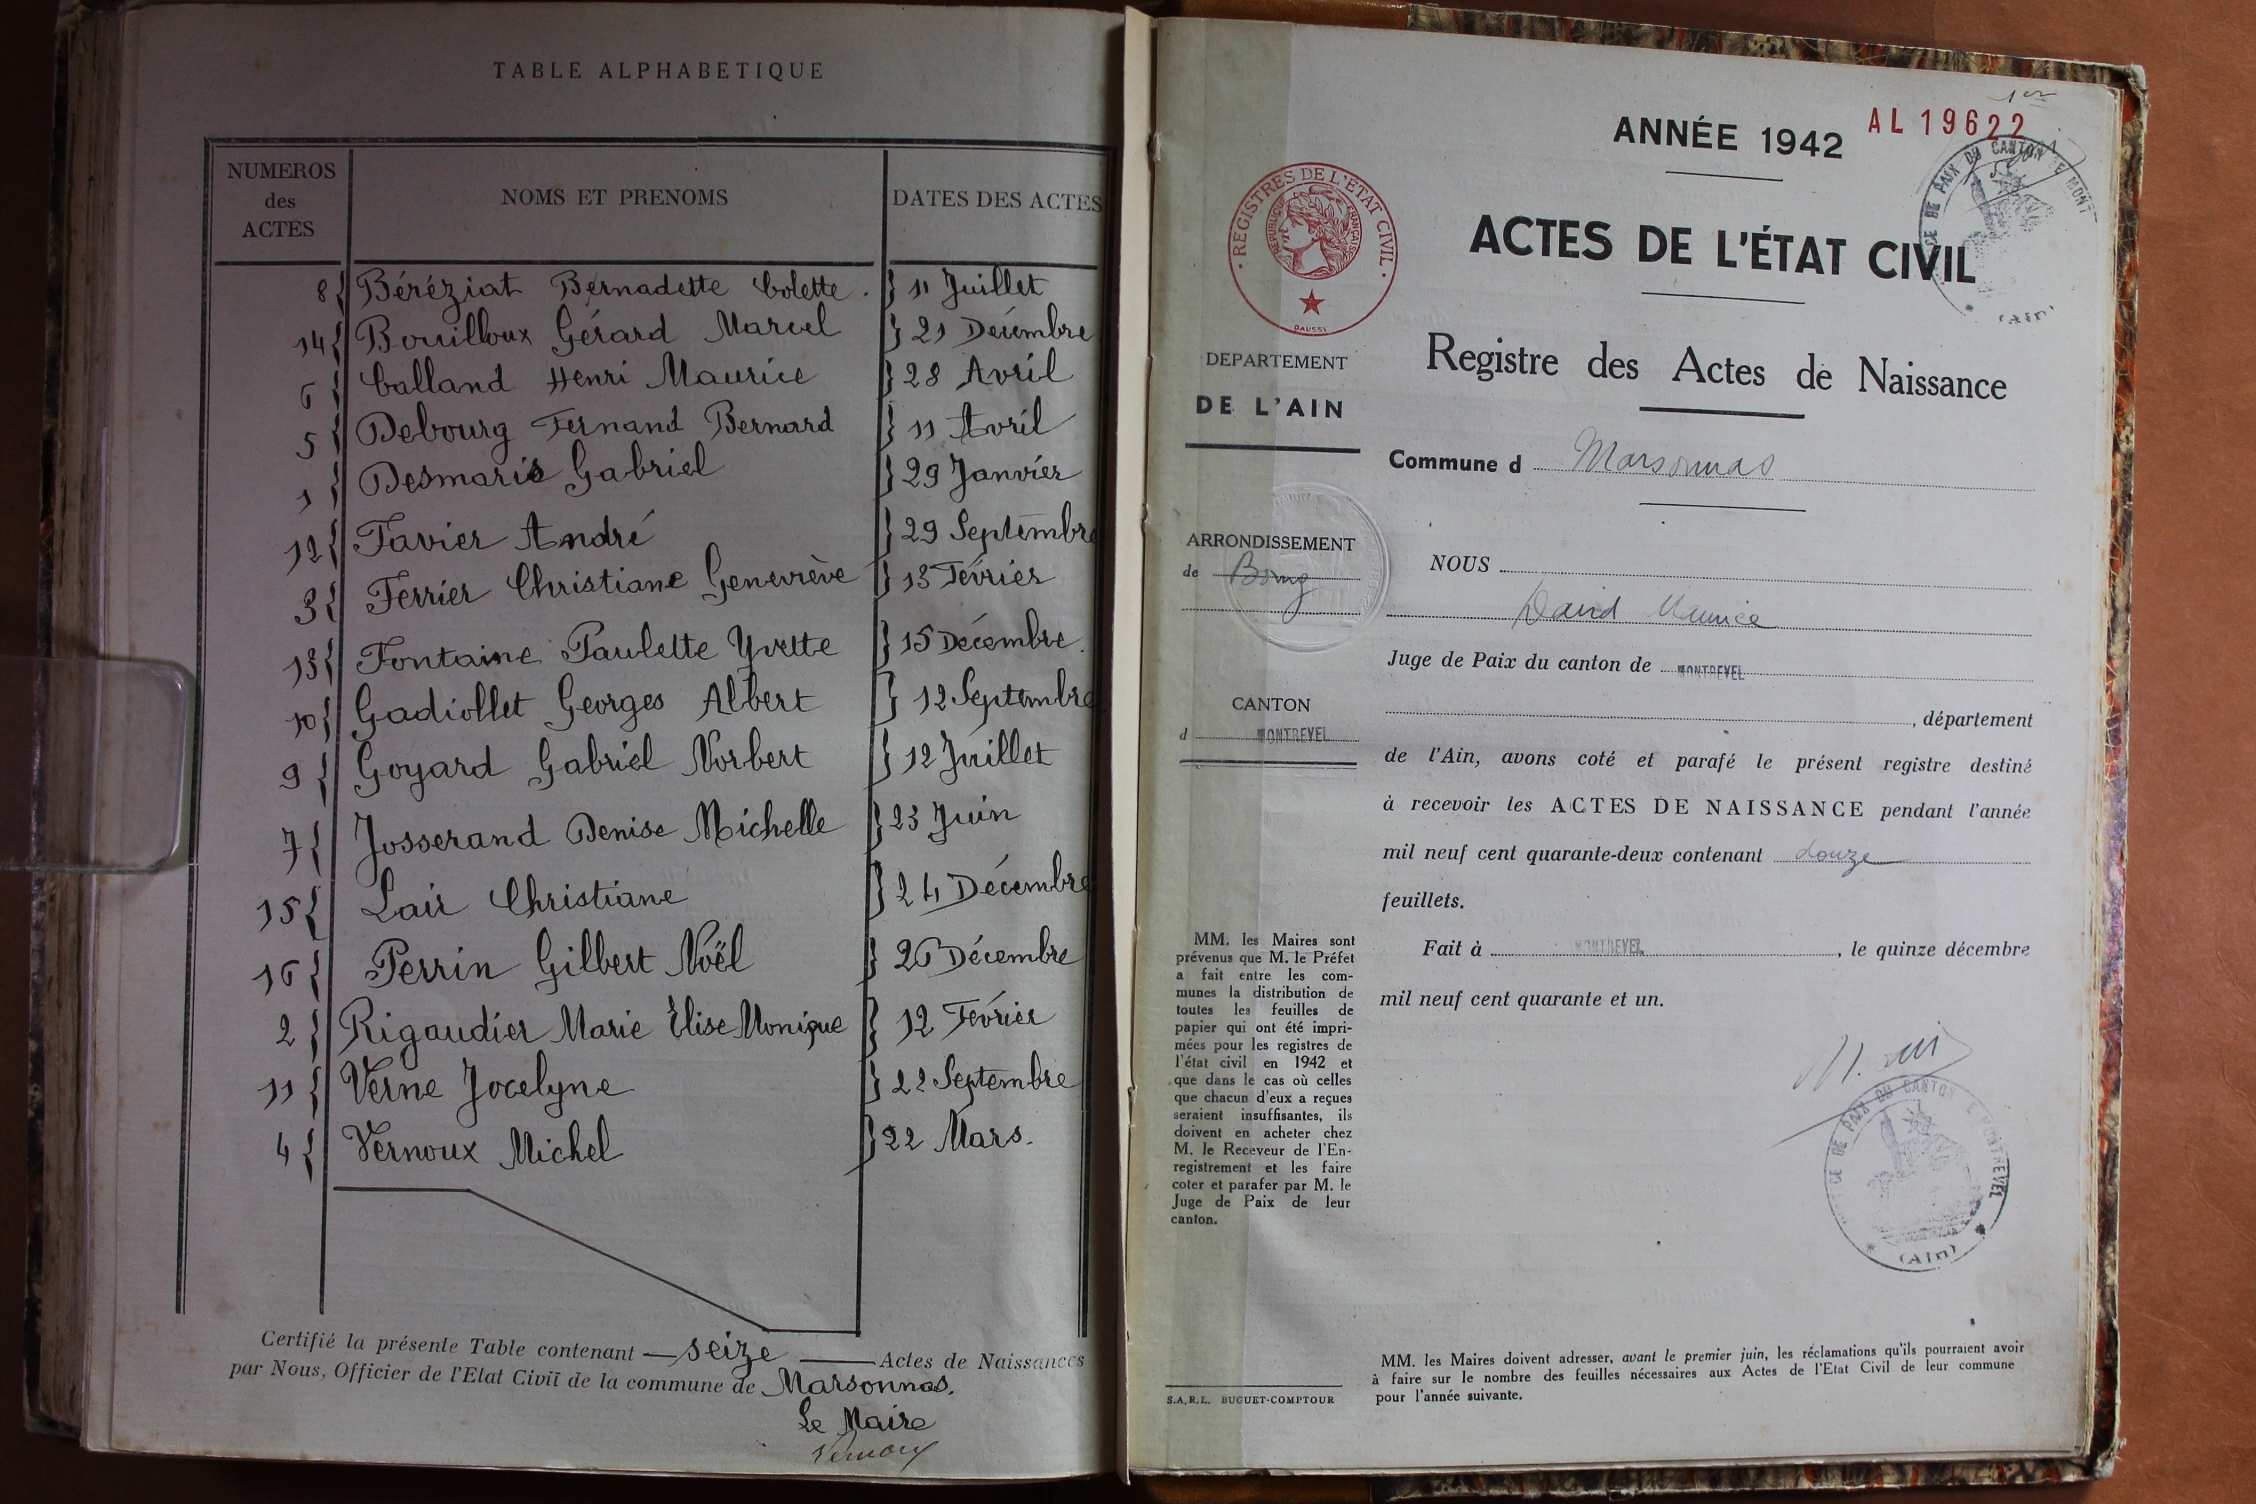 TABLE ALPHABETIQUE
NUMEROS des ACTES NOMS ET PRENOMS DATES DES ACTES
8 { Béréziat Bernadette Colette. } 11 Juillet
14 { Bouilloux Gérard Marcel } 21 Décembre
6 { Calland Henri Maurice } 28 Avril
5 { Debourg Fernand Bernard } 11 Avril
1 { Desmaris Gabriel } 29 Janvier
12 { Favier André } 29 Septembre
3 { Ferrier Christiane Geneviève } 13 Février
13 { Fontaine Paulette Yvette } 15 Décembre.
10 { Gadiollet Georges Albert } 12 Septembre
9 { Goyard Gabriel Norbert } 12 Juillet
7 { Josserand Denise Michelle } 23 Juin
15 { Lair Christiane } 24 Décembre
16 { Perrin Gilbert Noël } 26 Décembre
2 { Rigaudier Marie Élise Monique } 12 Février
11 { Verne Jocelyne } 22 Septembre
4 { Vernoux Michel } 22 Mars.
Certifié la présente Table contenant — seize — Actes de Naissances
par Nous, Officier de l'Etat Civil de la commune de Marsonnas.
Le Maire
1er
ANNÉE 1942 AL 19622
REGISTRES DE L'ETAT CIVIL
REPUBLIQUE FRANÇAISE
DAUSSI
DE PAIX DU CANTON DE MONT
(Ain)
ACTES DE L'ÉTAT CIVIL
Registre des Actes de Naissance
DEPARTEMENT
DE L'AIN
Commune d Marsonnas
ARRONDISSEMENT
de Bourg
CANTON
d MONTREVEL
NOUS
David Maurice
Juge de Paix du canton de MONTREVEL
, département
de l'Ain, avons coté et parafé le présent registre destiné
à recevoir les ACTES DE NAISSANCE pendant l'année
mil neuf cent quarante-deux contenant douze
feuillets.
Fait à MONTREVEL, le quinze décembre
mil neuf cent quarante et un.
MM. les Maires sont
prévenus que M. le Préfet
a fait entre les com-
munes la distribution de
toutes les feuilles de
papier qui ont été impri-
mées pour les registres de
l'état civil en 1942 et
que dans le cas où celles
que chacun d'eux a reçues
seraient insuffisantes, ils
doivent en acheter chez
M. le Receveur de l'En-
registrement et les faire
coter et parafer par M. le
Juge de Paix de leur
canton.
DE PAIX DU CANTON E MONTREVEL
(Ain)
MM. les Maires doivent adresser, avant le premier juin, les réclamations qu'ils pourraient avoir
à faire sur le nombre des feuilles nécessaires aux Actes de l'Etat Civil de leur commune
pour l'année suivante.
S.A.R.L. BUGUET-COMPTOUR